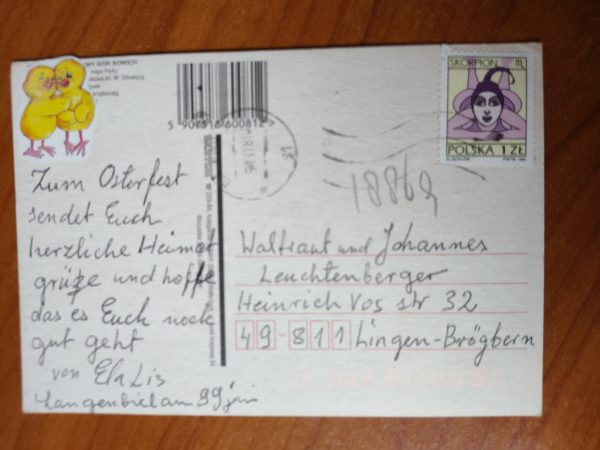 SKORPION ♏
POLSKA 1 ZŁ
5 907518 600812 >
18869
Zum Osterfest
sendet Euch
herzliche Heimat
grüße und hoffe
das es Euch noch
gut geht
von Ela Lis
Langenbielau 99
Walfraut und Johannes
Leuchtenberger
Heinrich Vos str 32
49-811 Lingen-Brögbern